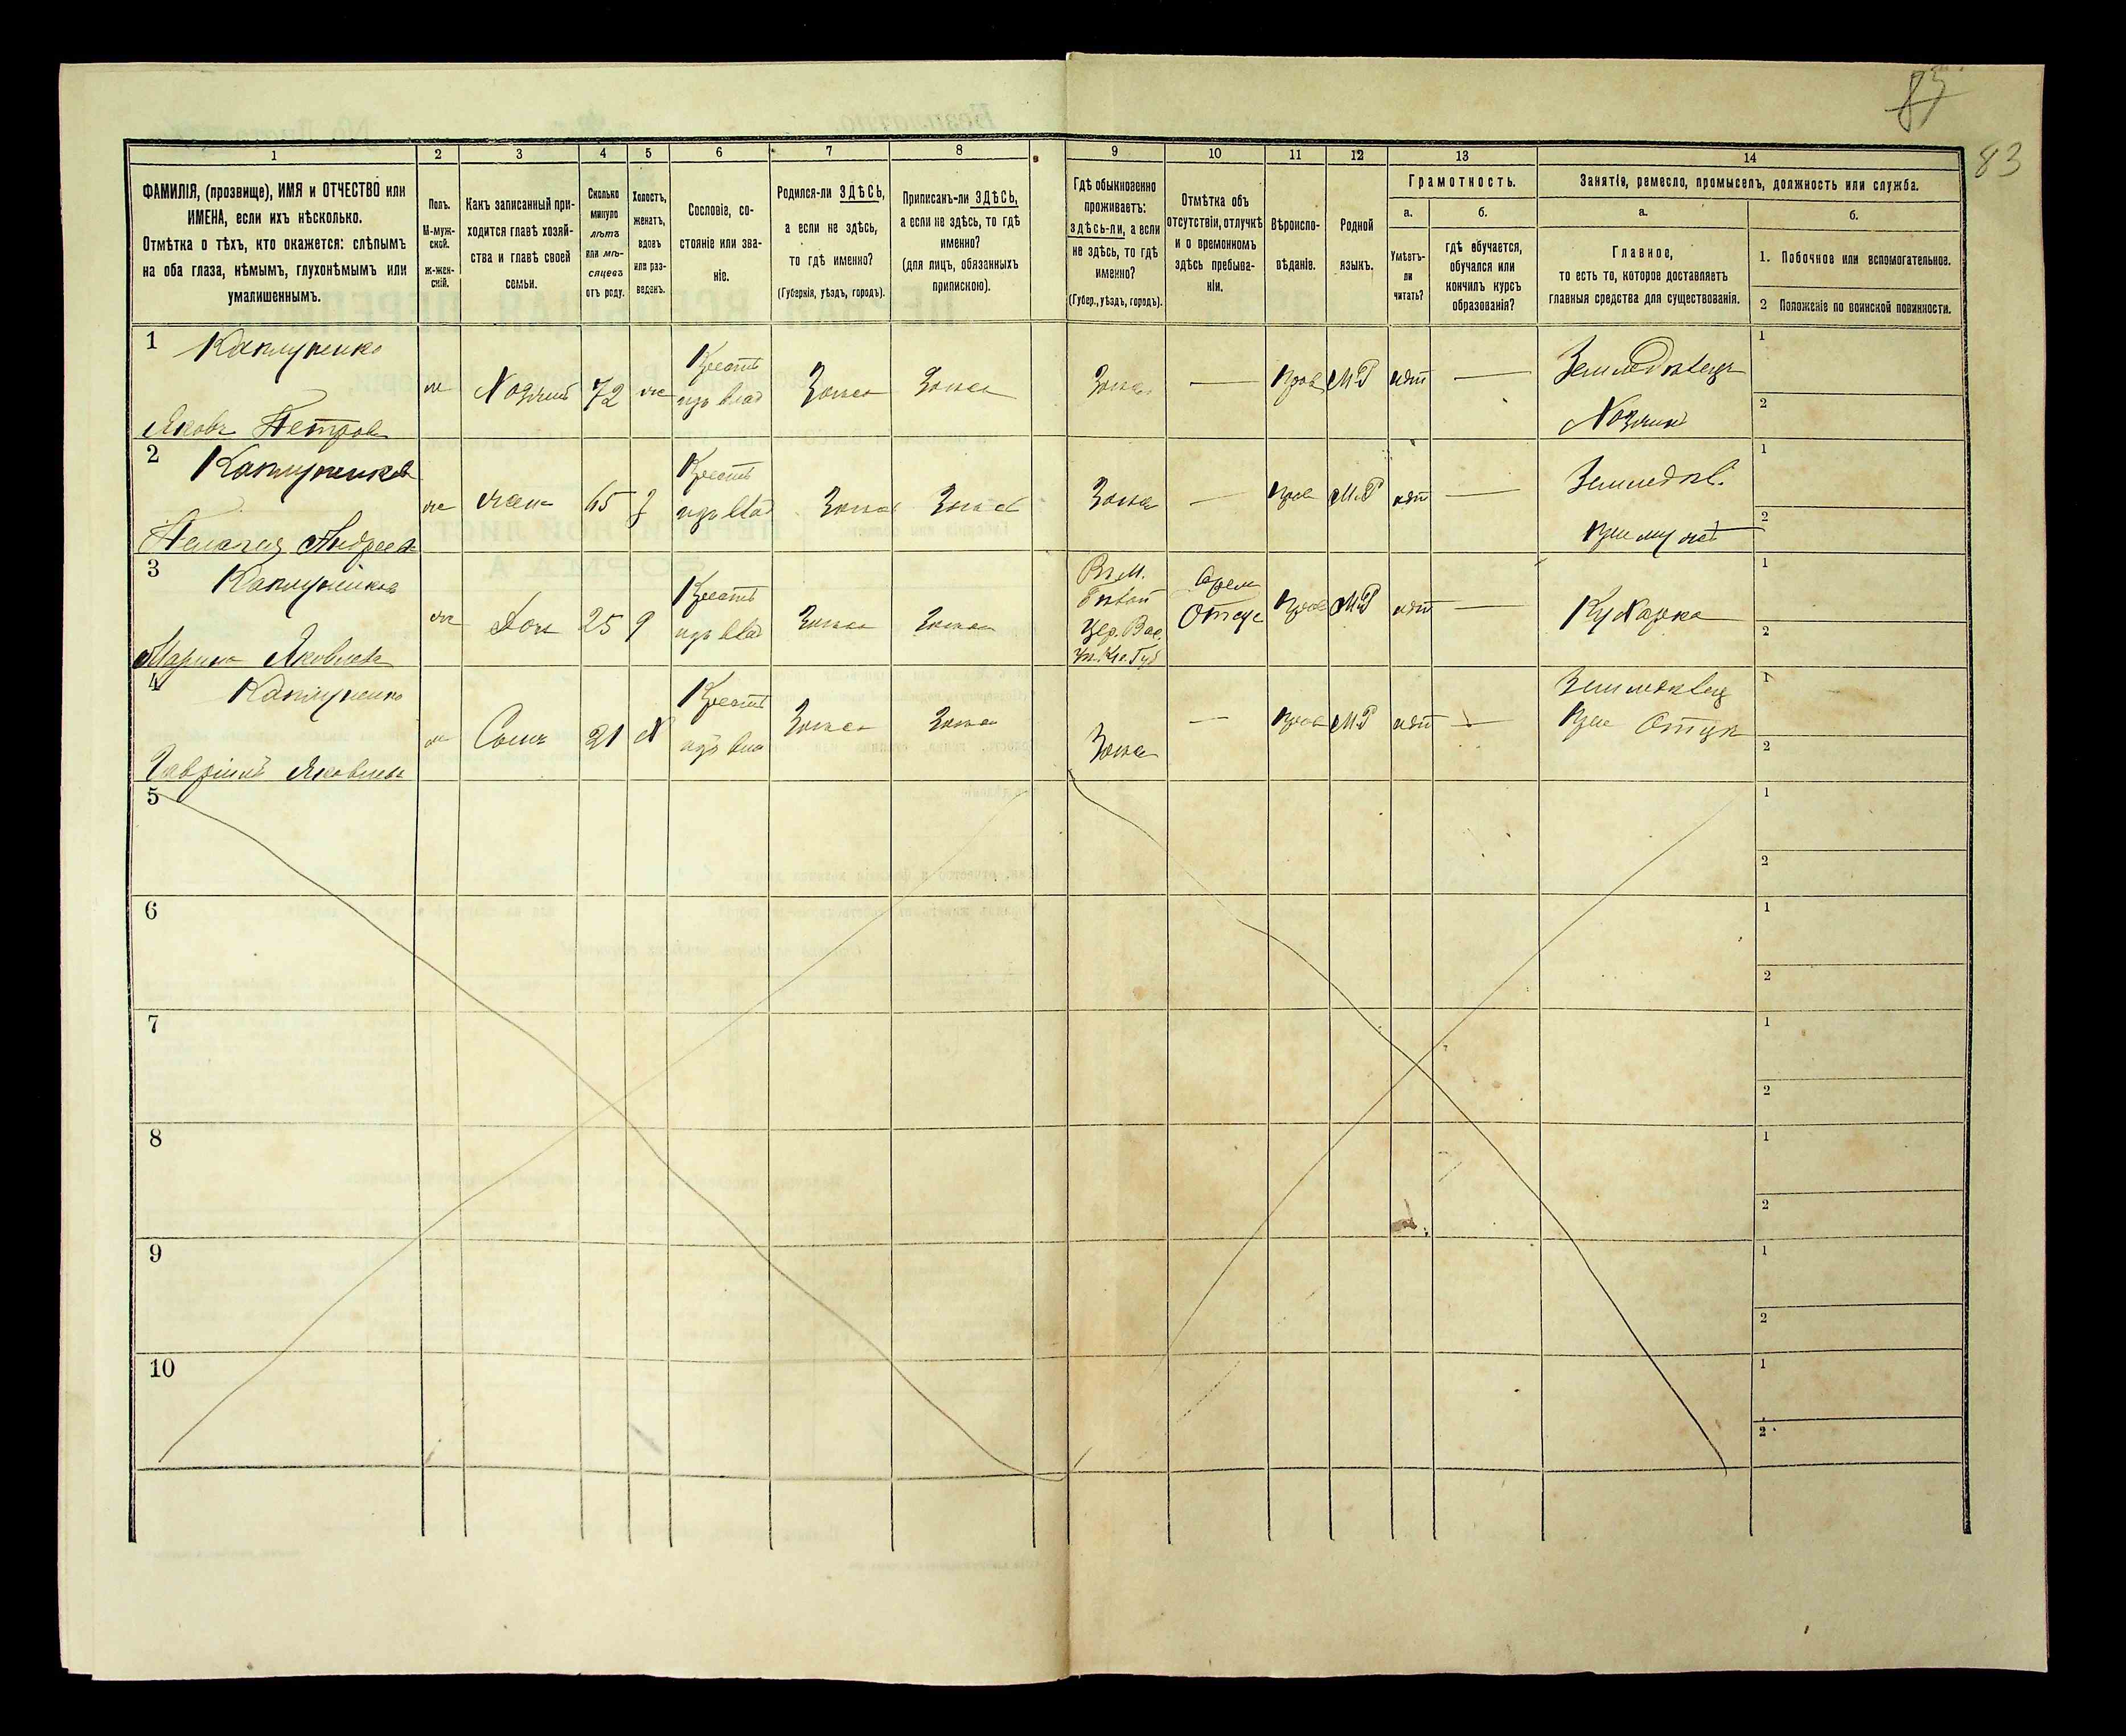 85
83
1
2
3
4
5
6
7
8
9
10
11
12
13
14
ФАМИЛІЯ, (прозвище), ИМЯ и ОТЧЕСТВО или
ИМЕНА, если ихъ нѣсколько.
Отмѣтка о тѣхъ, кто окажется: слѣпымъ
на оба глаза, нѣмымъ, глухонѣмымъ или
умалишеннымъ.
Полъ.
М-муж-
ской.
ж-жен-
скій.
Какъ записанный при-
ходится главѣ хозяй-
ства и главѣ своей
семьи.
Сколько
минуло
лѣтъ
или мѣ-
сяцевъ
отъ роду.
Холостъ,
женатъ,
вдовъ
или раз-
веденъ.
Сословіе, со-
стояніе или зва-
ніе.
Родился-ли ЗДѢСЬ,
а если не здѣсь,
то гдѣ именно?
(Губернія, уѣздъ, городъ).
Приписанъ-ли ЗДѢСЬ,
а если не здѣсь, то гдѣ
именно?
(для лицъ, обязанныхъ
припискою).
Гдѣ обыкновенно
проживаетъ:
здѣсь-ли, а если
не здѣсь, то гдѣ
именно?
(Губер., уѣздъ, городъ).
Отмѣтка объ
отсутствіи, отлучкѣ
и о временномъ
здѣсь пребыва-
ніи.
Вѣроиспо-
вѣданіе.
Родной
языкъ.
Грамотность.
а.
Умѣетъ-
ли
читать?
б.
гдѣ обучается,
обучался или
кончилъ курсъ
образованія?
Занятія, ремесло, промыселъ, должность или служба.
а.
Главное,
то есть то, которое доставляетъ
главныя средства для существованія.
б.
1. Побочное или вспомогательное.
2 Положеніе по воинской повинности.
1 Каплуненко
Яковъ Петров
м Хозяинъ 72 ж
Крестъ
изъ влад
Здѣсь Здѣсь
Здѣсь — Прав МР нѣт —
Земледѣлецъ
Хозяинъ
1
2
2 Каплуненков
Пелагея Андреев
ж жена 65 з
Крестъ
изъ влад
Здѣсь Здѣсь
Здѣсь — Прав МР нѣт —
Земледѣл.
При мужѣ
1
2
3 Каплуненков
Марина Яковлева
ж Дочь 25 д
Крестъ
изъ влад
Здѣсь Здѣсь
Вас.
Врем
Отсус
Прав МР нѣт —
Кухарка
1
2
4 Каплуненко
Гавріилъ Яковлевъ
м Сынъ 21 х
Крестъ
изъ вла
Здѣсь Здѣсь
Здѣсь — Прав МР нѣт —
Земледѣлец
При Отцѣ
1
2
5
1
2
6
1
2
7
1
2
8
1
2
9
1
2
10
1
2